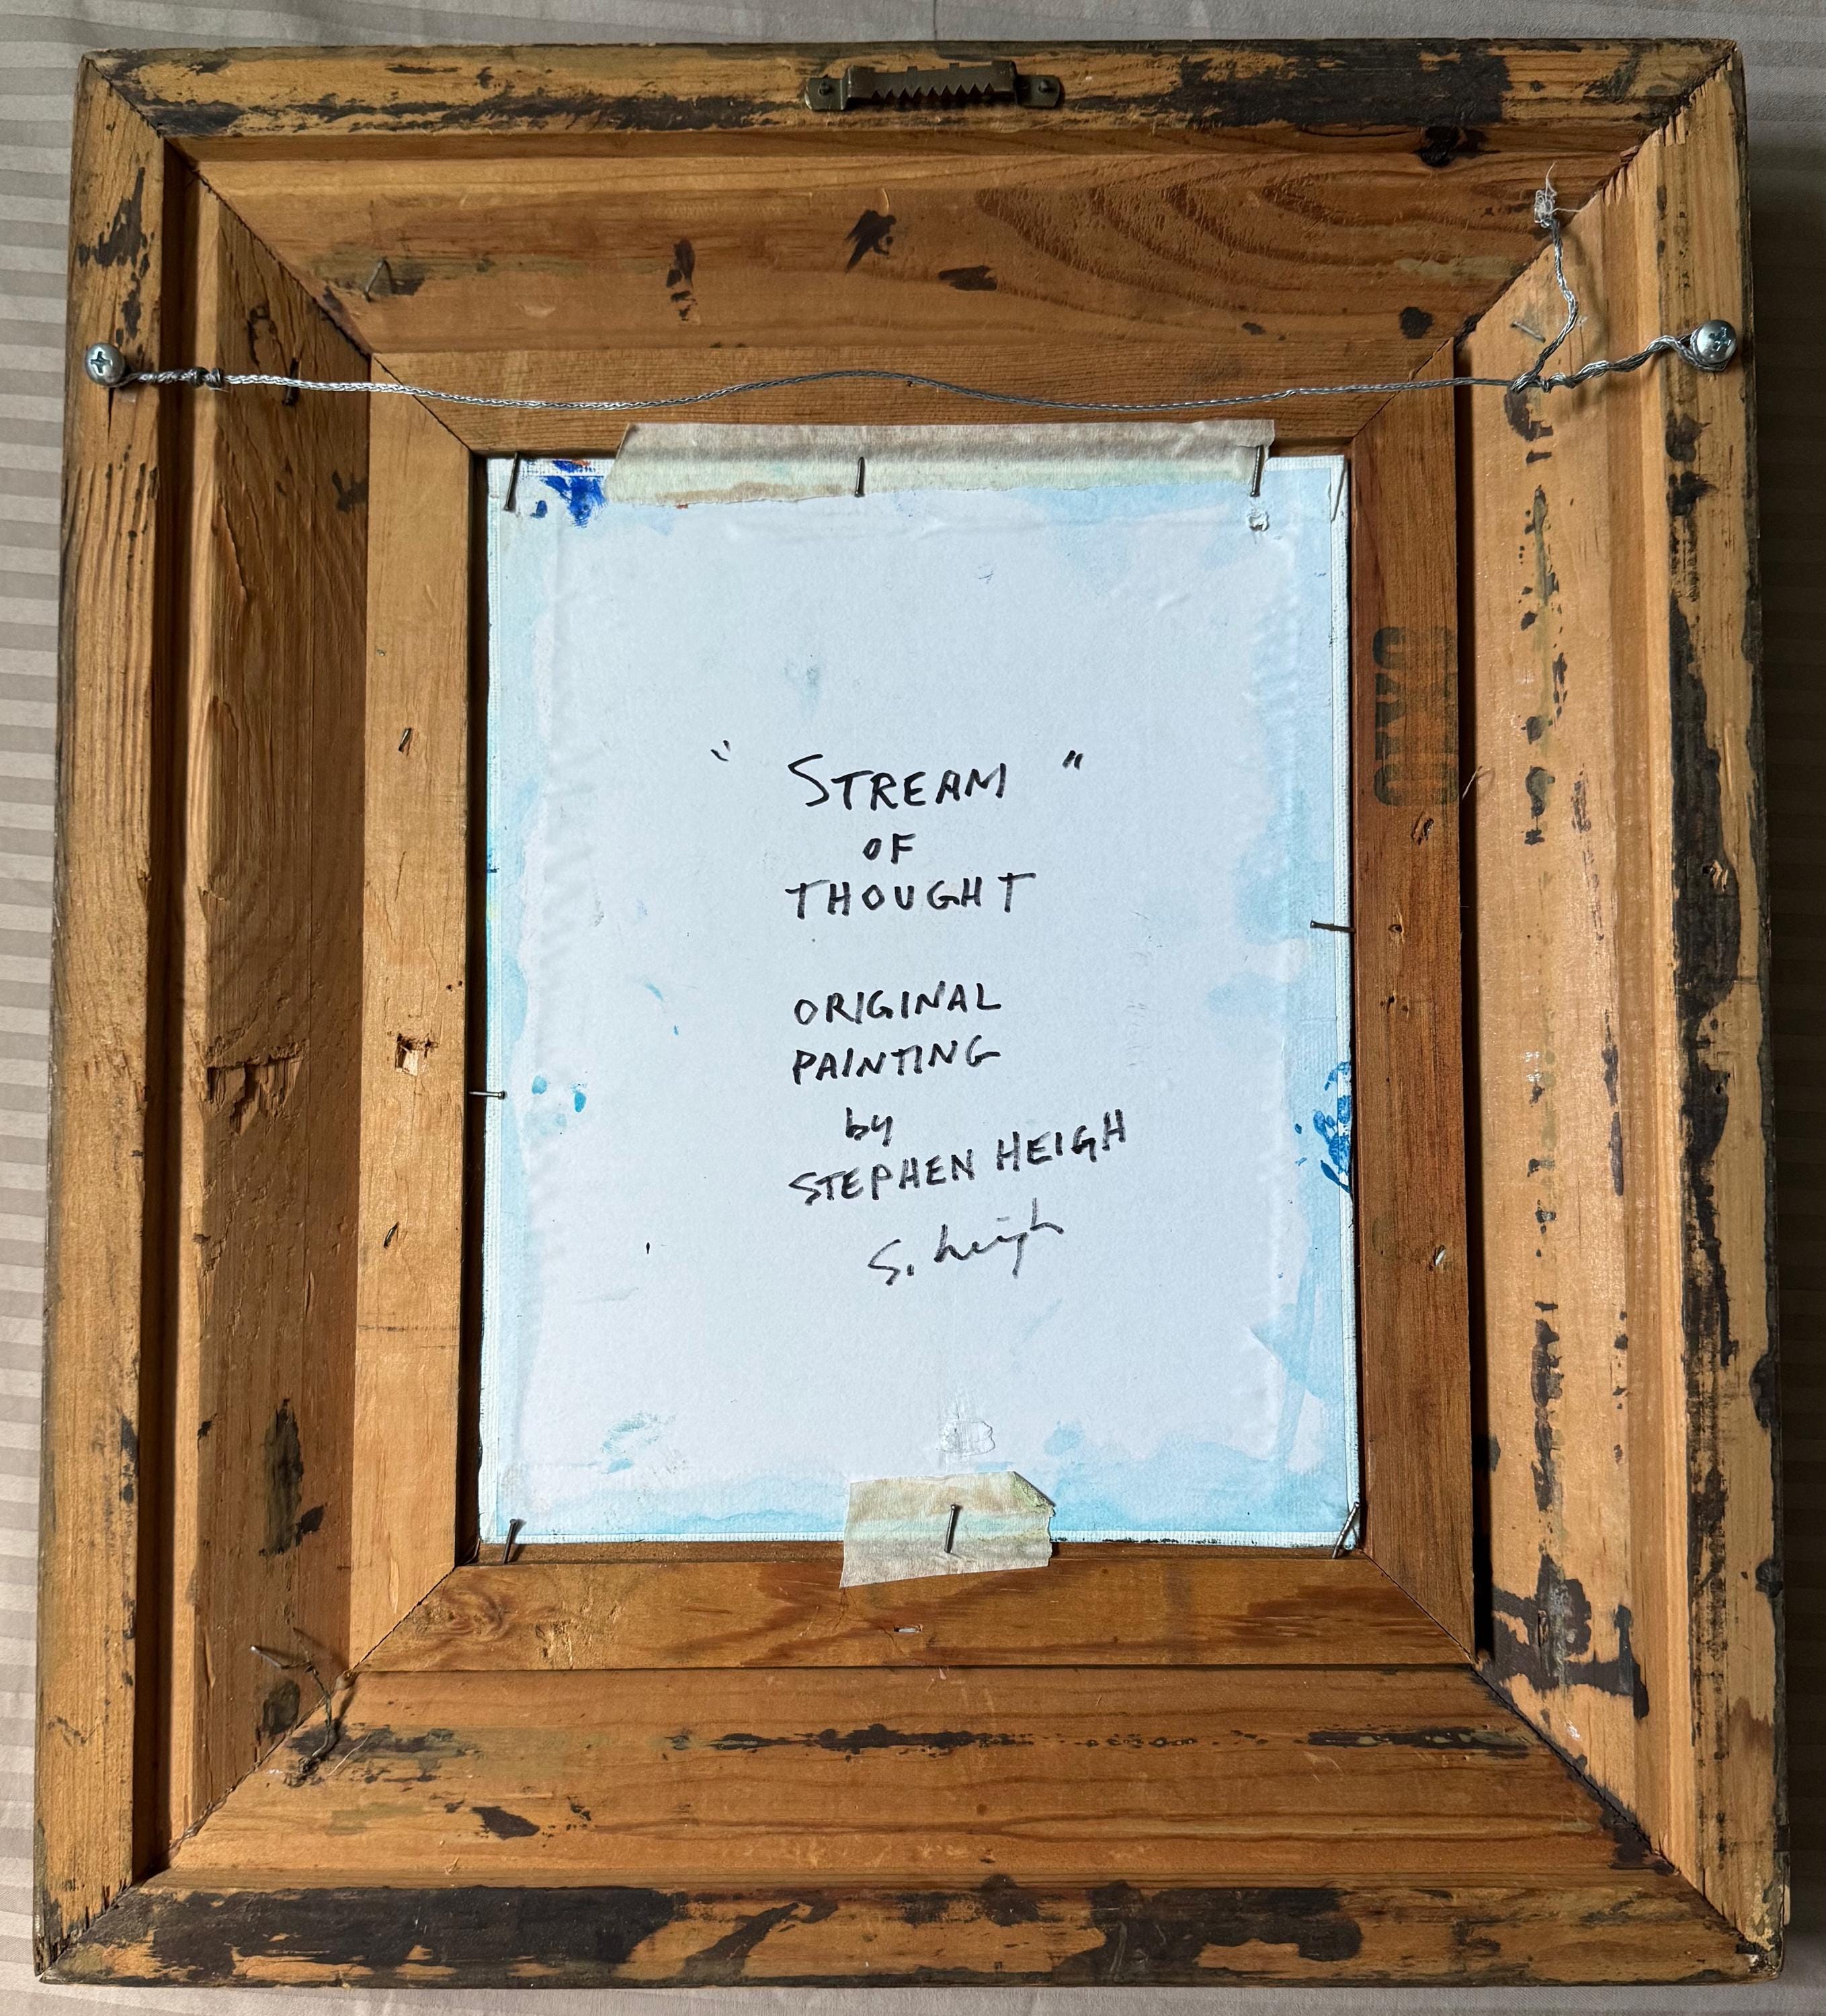 " STREAM "
OF
THOUGHT
ORIGINAL
PAINTING
by
STEPHEN HEIGH
S. Heigh